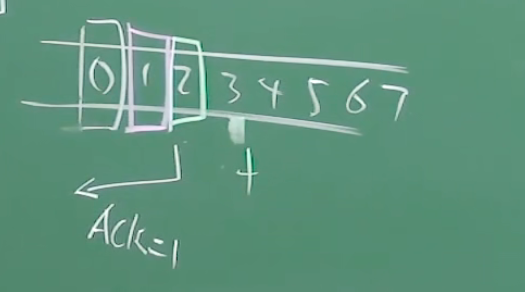 0 1 2 3 4 5 6 7
Ack=1